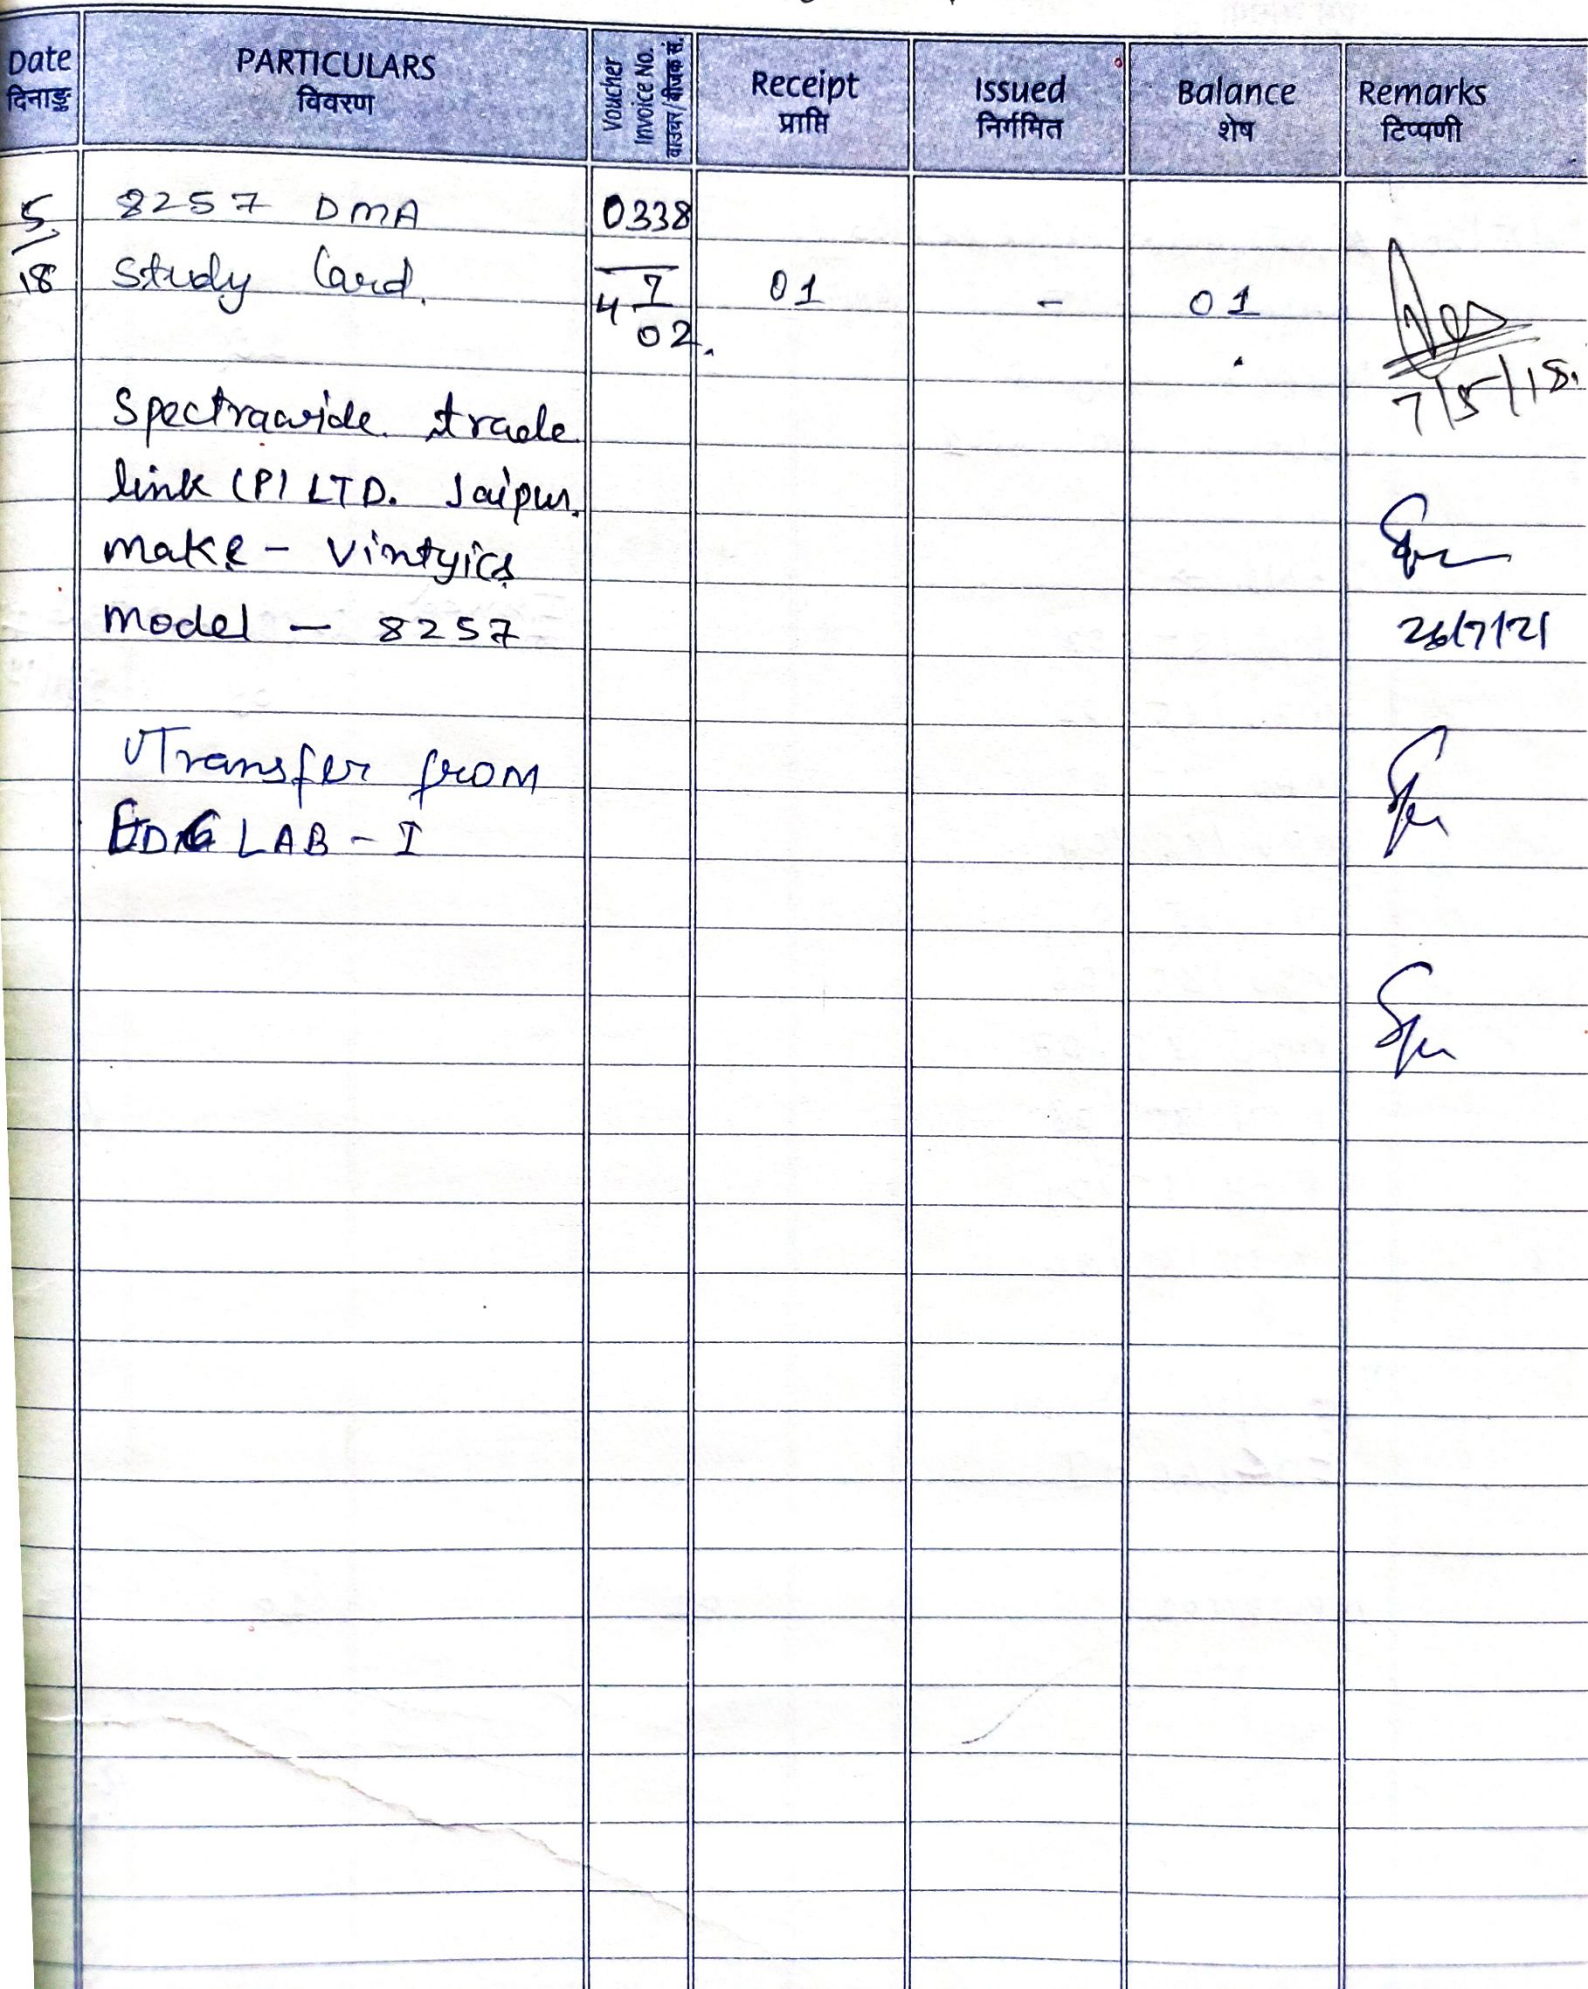 Date
दिनाङ्क
PARTICULARS
विवरण
Voucher
Invoice No.
वाउचर/बीजक सं.
Receipt
प्राप्ति
Issued
निर्गमित
Balance
शेष
Remarks
टिप्पणी
5 8257 DMA 0338
18 Study Card. 4 7 01 - 01
02.
7/5/18.
Spectrawide trade
link (P) LTD. Jaipur.
Make - Vintyics
Model - 8257 26/7/21
Transfer from
LAB - I